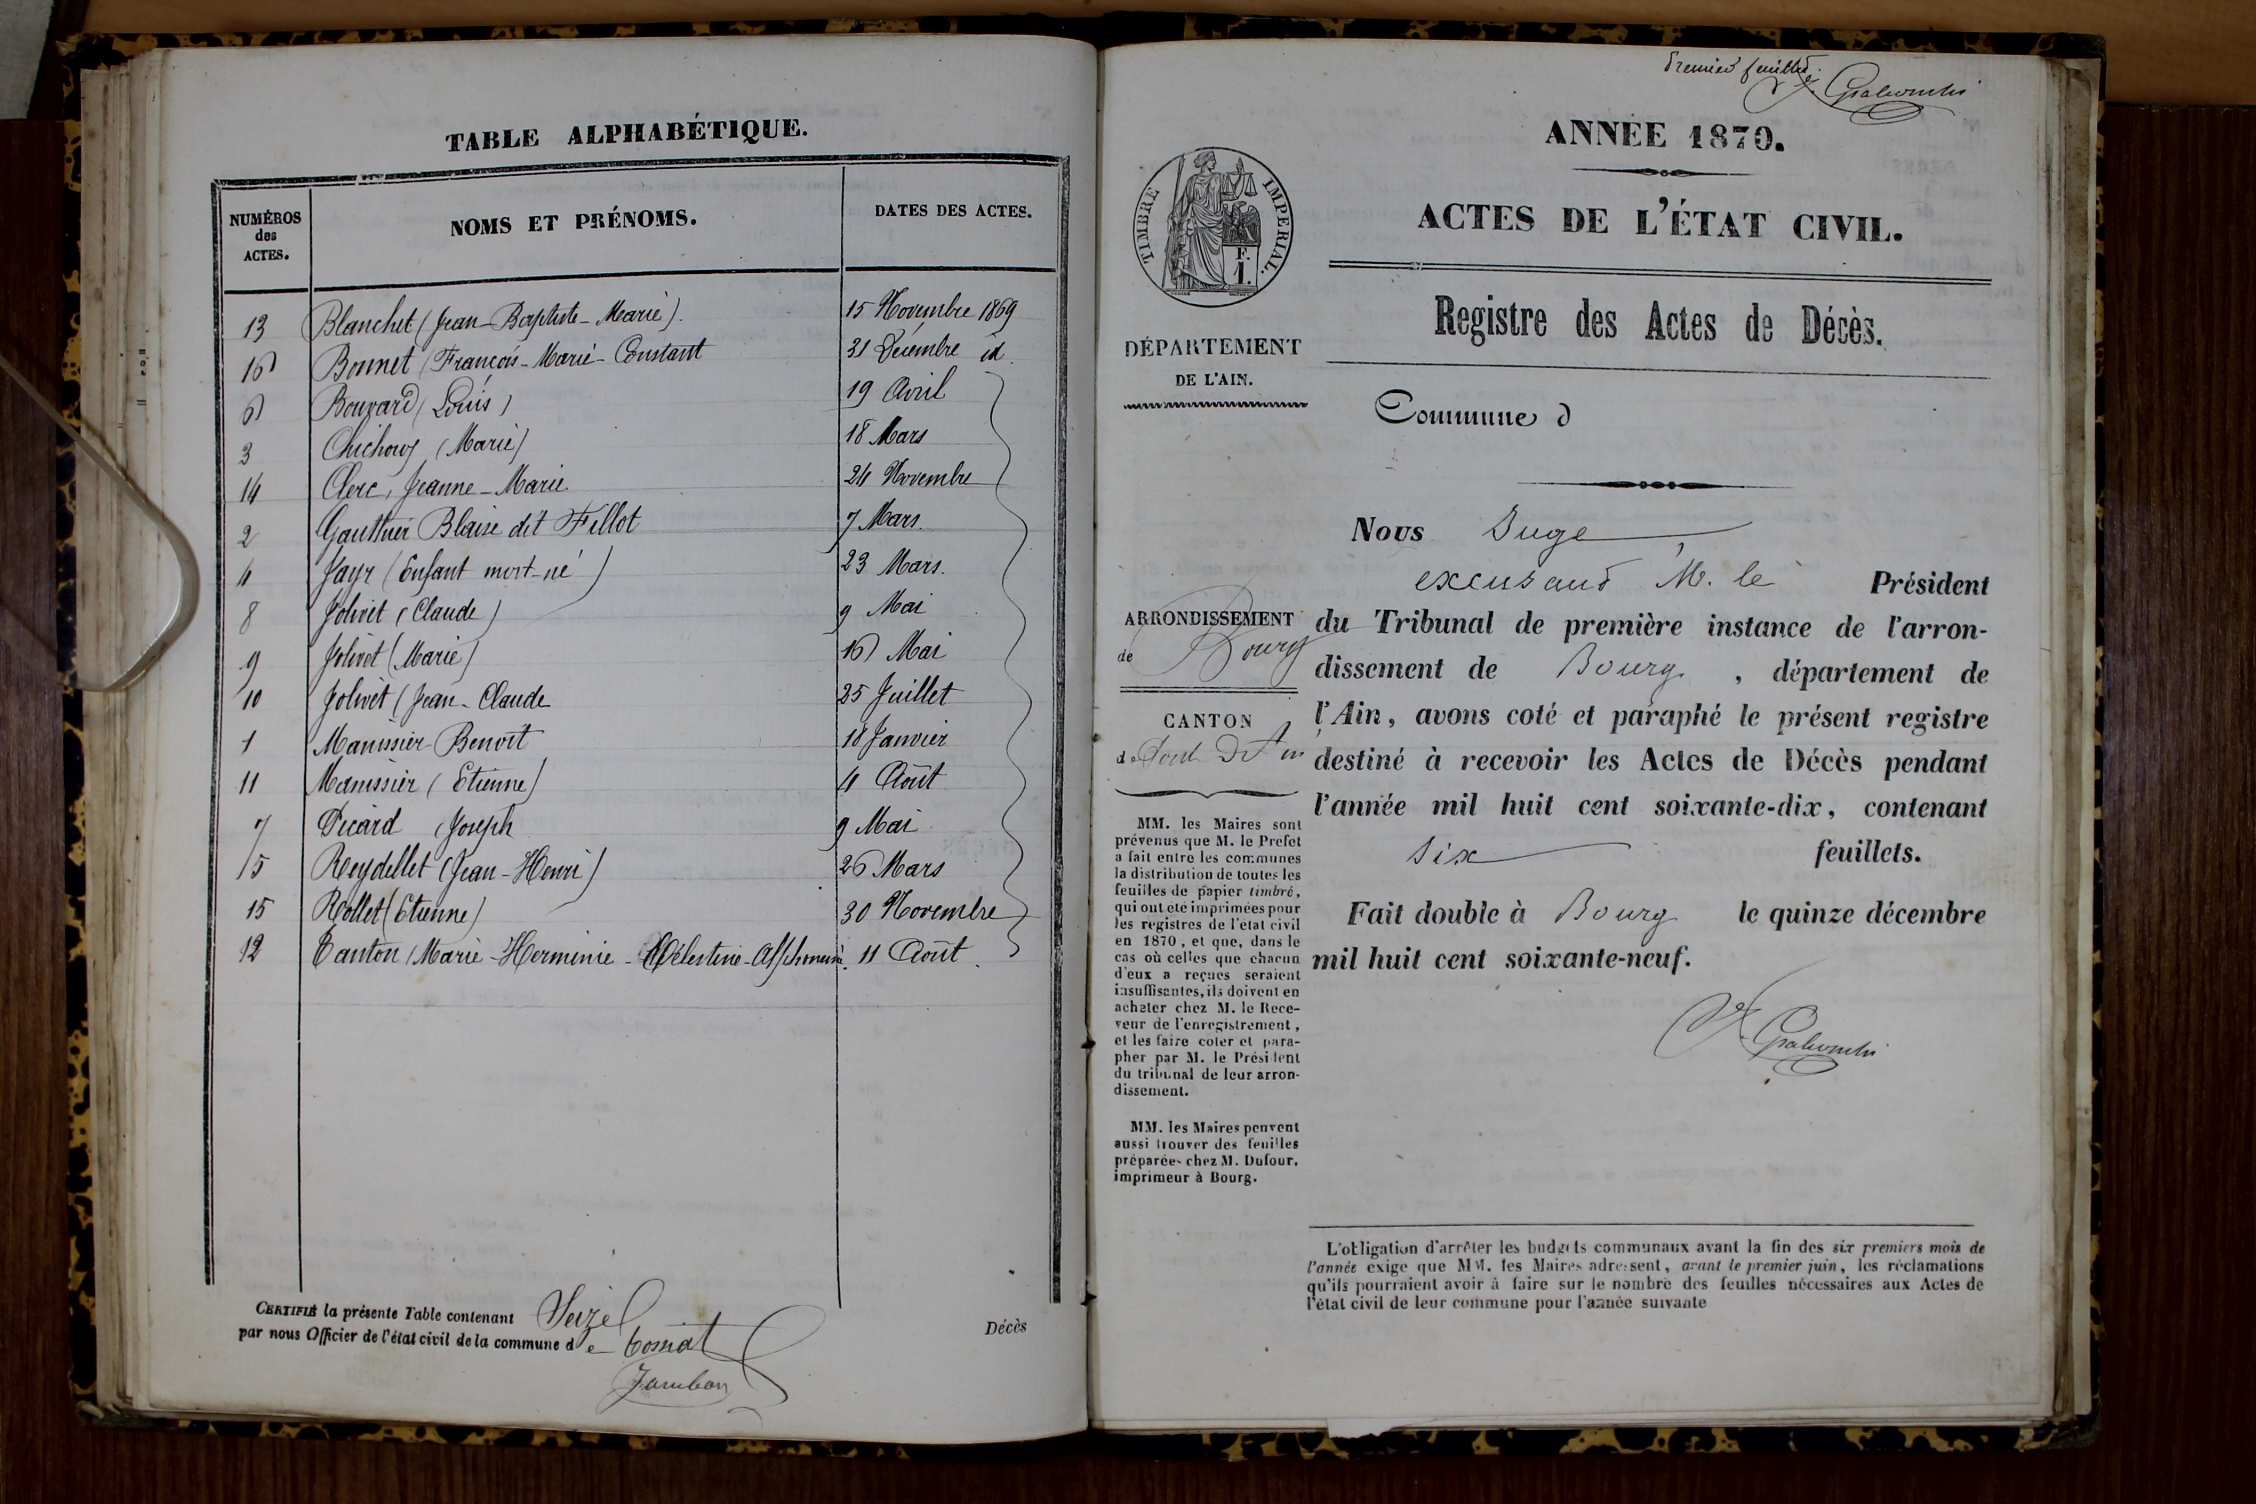 TABLE ALPHABÉTIQUE.
NUMÉROS des ACTES.
NOMS ET PRÉNOMS.
DATES DES ACTES.
13 Blanchet (Jean-Baptiste-Marie). 15 Novembre 1869
16 Bonnet (François-Marie-Constant 31 Décembre id.
6 Bouvard (Louis) 19 Avril
3 (Marie) 18 Mars
14 Clerc, Jeanne-Marie 24 Novembre
2 Gauthier Blaise dit Fillot 7 Mars.
4 Jayr (Enfant mort-né) 23 Mars.
8 Jolivet (Claude) 9 Mai
9 Jolivet (Marie) 16 Mai
10 Jolivet (Jean-Claude 25 Juillet
1 Manissier Benoît 18 Janvier
11 Manissier (Etienne) 4 Août
7 Picard (Joseph 9 Mai
5 Reydellet (Jean-Henri) 26 Mars
15 Rollet (Etienne) 30 Novembre
12 Tanton (Marie-Herminie-Célestine- 11 Août.
CERTIFIÉ la présente Table contenant Seize
par nous Officier de l'état civil de la commune de Tossiat
Jambon
Décès
Premier feuillet
ANNÉE 1870.
TIMBRE IMPERIAL.
F.
1.
ACTES DE L'ÉTAT CIVIL.
Registre des Actes de Décès.
DÉPARTEMENT
DE L'AIN.
Commune d
Nous Juge
M. le Président
ARRONDISSEMENT
de Bourg
du Tribunal de première instance de l'arron-
dissement de Bourg, département de
l'Ain, avons coté et paraphé le présent registre
destiné à recevoir les Actes de Décès pendant
l'année mil huit cent soixante-dix, contenant
six feuillets.
Fait double à Bourg le quinze décembre
mil huit cent soixante-neuf.
CANTON
de Pont d'Ain
MM. les Maires sont
prévenus que M. le Prefet
a fait entre les communes
la distribution de toutes les
feuilles de papier timbré,
qui ont été imprimées pour
les registres de l'état civil
en 1870, et que, dans le
cas où celles que chacun
d'eux a reçues seraient
insuffisantes, ils doivent en
acheter chez M. le Rece-
veur de l'enregistrement,
et les faire coter et para-
pher par M. le Président
du tribunal de leur arron-
dissement.
MM. les Maires peuvent
aussi trouver des feuilles
préparées chez M. Dufour,
imprimeur à Bourg.
L'obligation d'arrêter les budgets communaux avant la fin des six premiers mois de
l'année exige que MM. les Maires adressent, avant le premier juin, les réclamations
qu'ils pourraient avoir à faire sur le nombre des feuilles nécessaires aux Actes de
l'état civil de leur commune pour l'année suivante